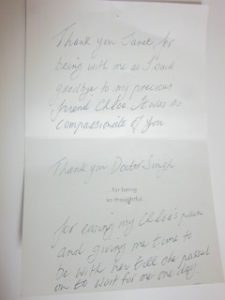 Thank you Janet, for
being with me as I said
goodbye to my precious
friend Chloe. It was so
compassionate of you
Thank you Doctor Singh
...for being
so thoughtful
for easing my Chloe's pain
and giving me time to
be with her till she passed
on to wait for me one day.